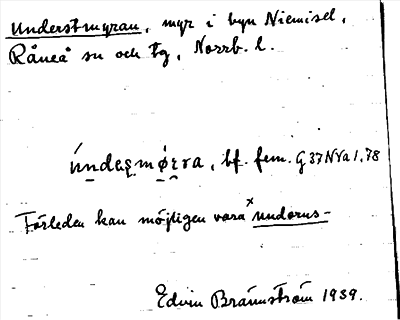 Understmyran, myr i byn Niemisel,
Råneå sn och tg, Norrb. l.
bf. fem. G 37 NVa 1, 78
Förleden kan möjligen vara ˣundorns-
Edvin Brännström 1939.